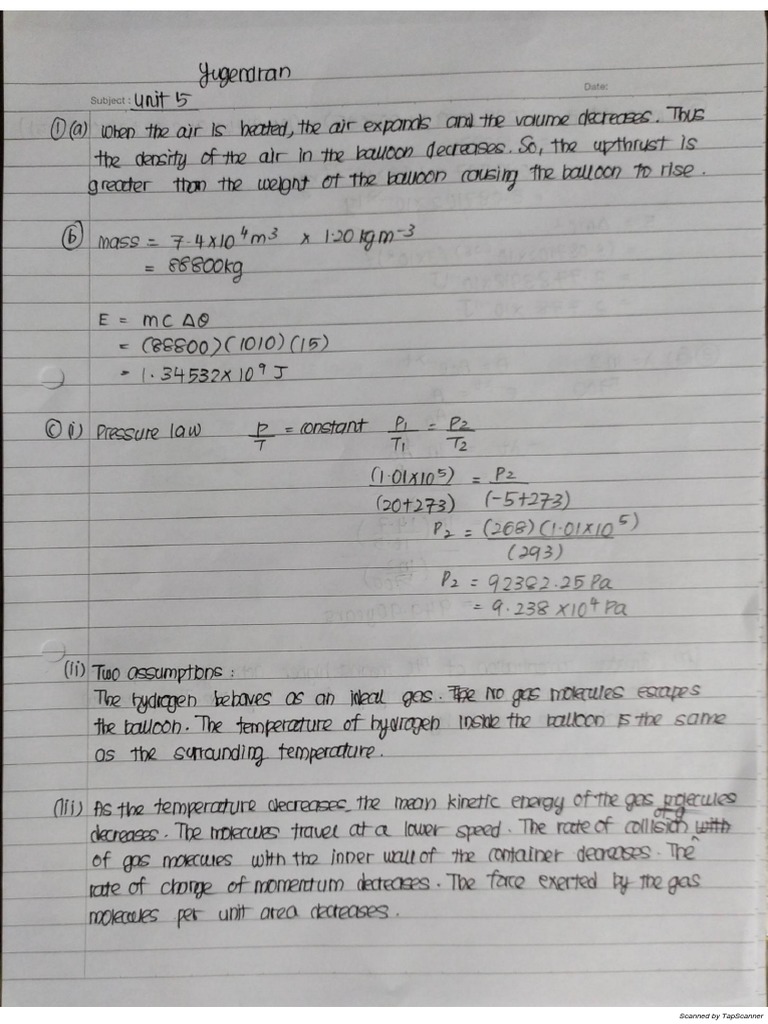 Yugendran
Date:
Subject : Unit 5
① (a) When the air is heated, the air expands and the volume decreases. Thus
the density of the air in the balloon decreases. So, the upthrust is
greater than the weight of the balloon causing the balloon to rise.
ⓑ mass = 7.4×10⁴m³ × 1.20 kgm⁻³
= 88800kg
E = mc Δθ
= (88800)(1010)(15)
= 1.34532×10⁹ J
ⓒ(i) Pressure law P/T = constant P₁/T₁ = P₂/T₂
(1.01×10⁵)/(20+273) = P₂/(-5+273)
P₂ = (268)(1.01×10⁵)/(293)
P₂ = 92382.25 Pa
= 9.238 ×10⁴ Pa
(ii) Two assumptions :
The hydrogen behaves as an ideal gas. The no gas molecules escapes
the balloon. The temperature of hydrogen inside the balloon is the same
as the surrounding temperature.
(iii) As the temperature decreases, the mean kinetic energy of the gas molecules
decreases. The molecules travel at a lower speed. The rate of collision with
of gas molecules with the inner wall of the container decreases. The
rate of change of momentum decreases. The force exerted by the gas
molecules per unit area decreases.
Scanned by TapScanner